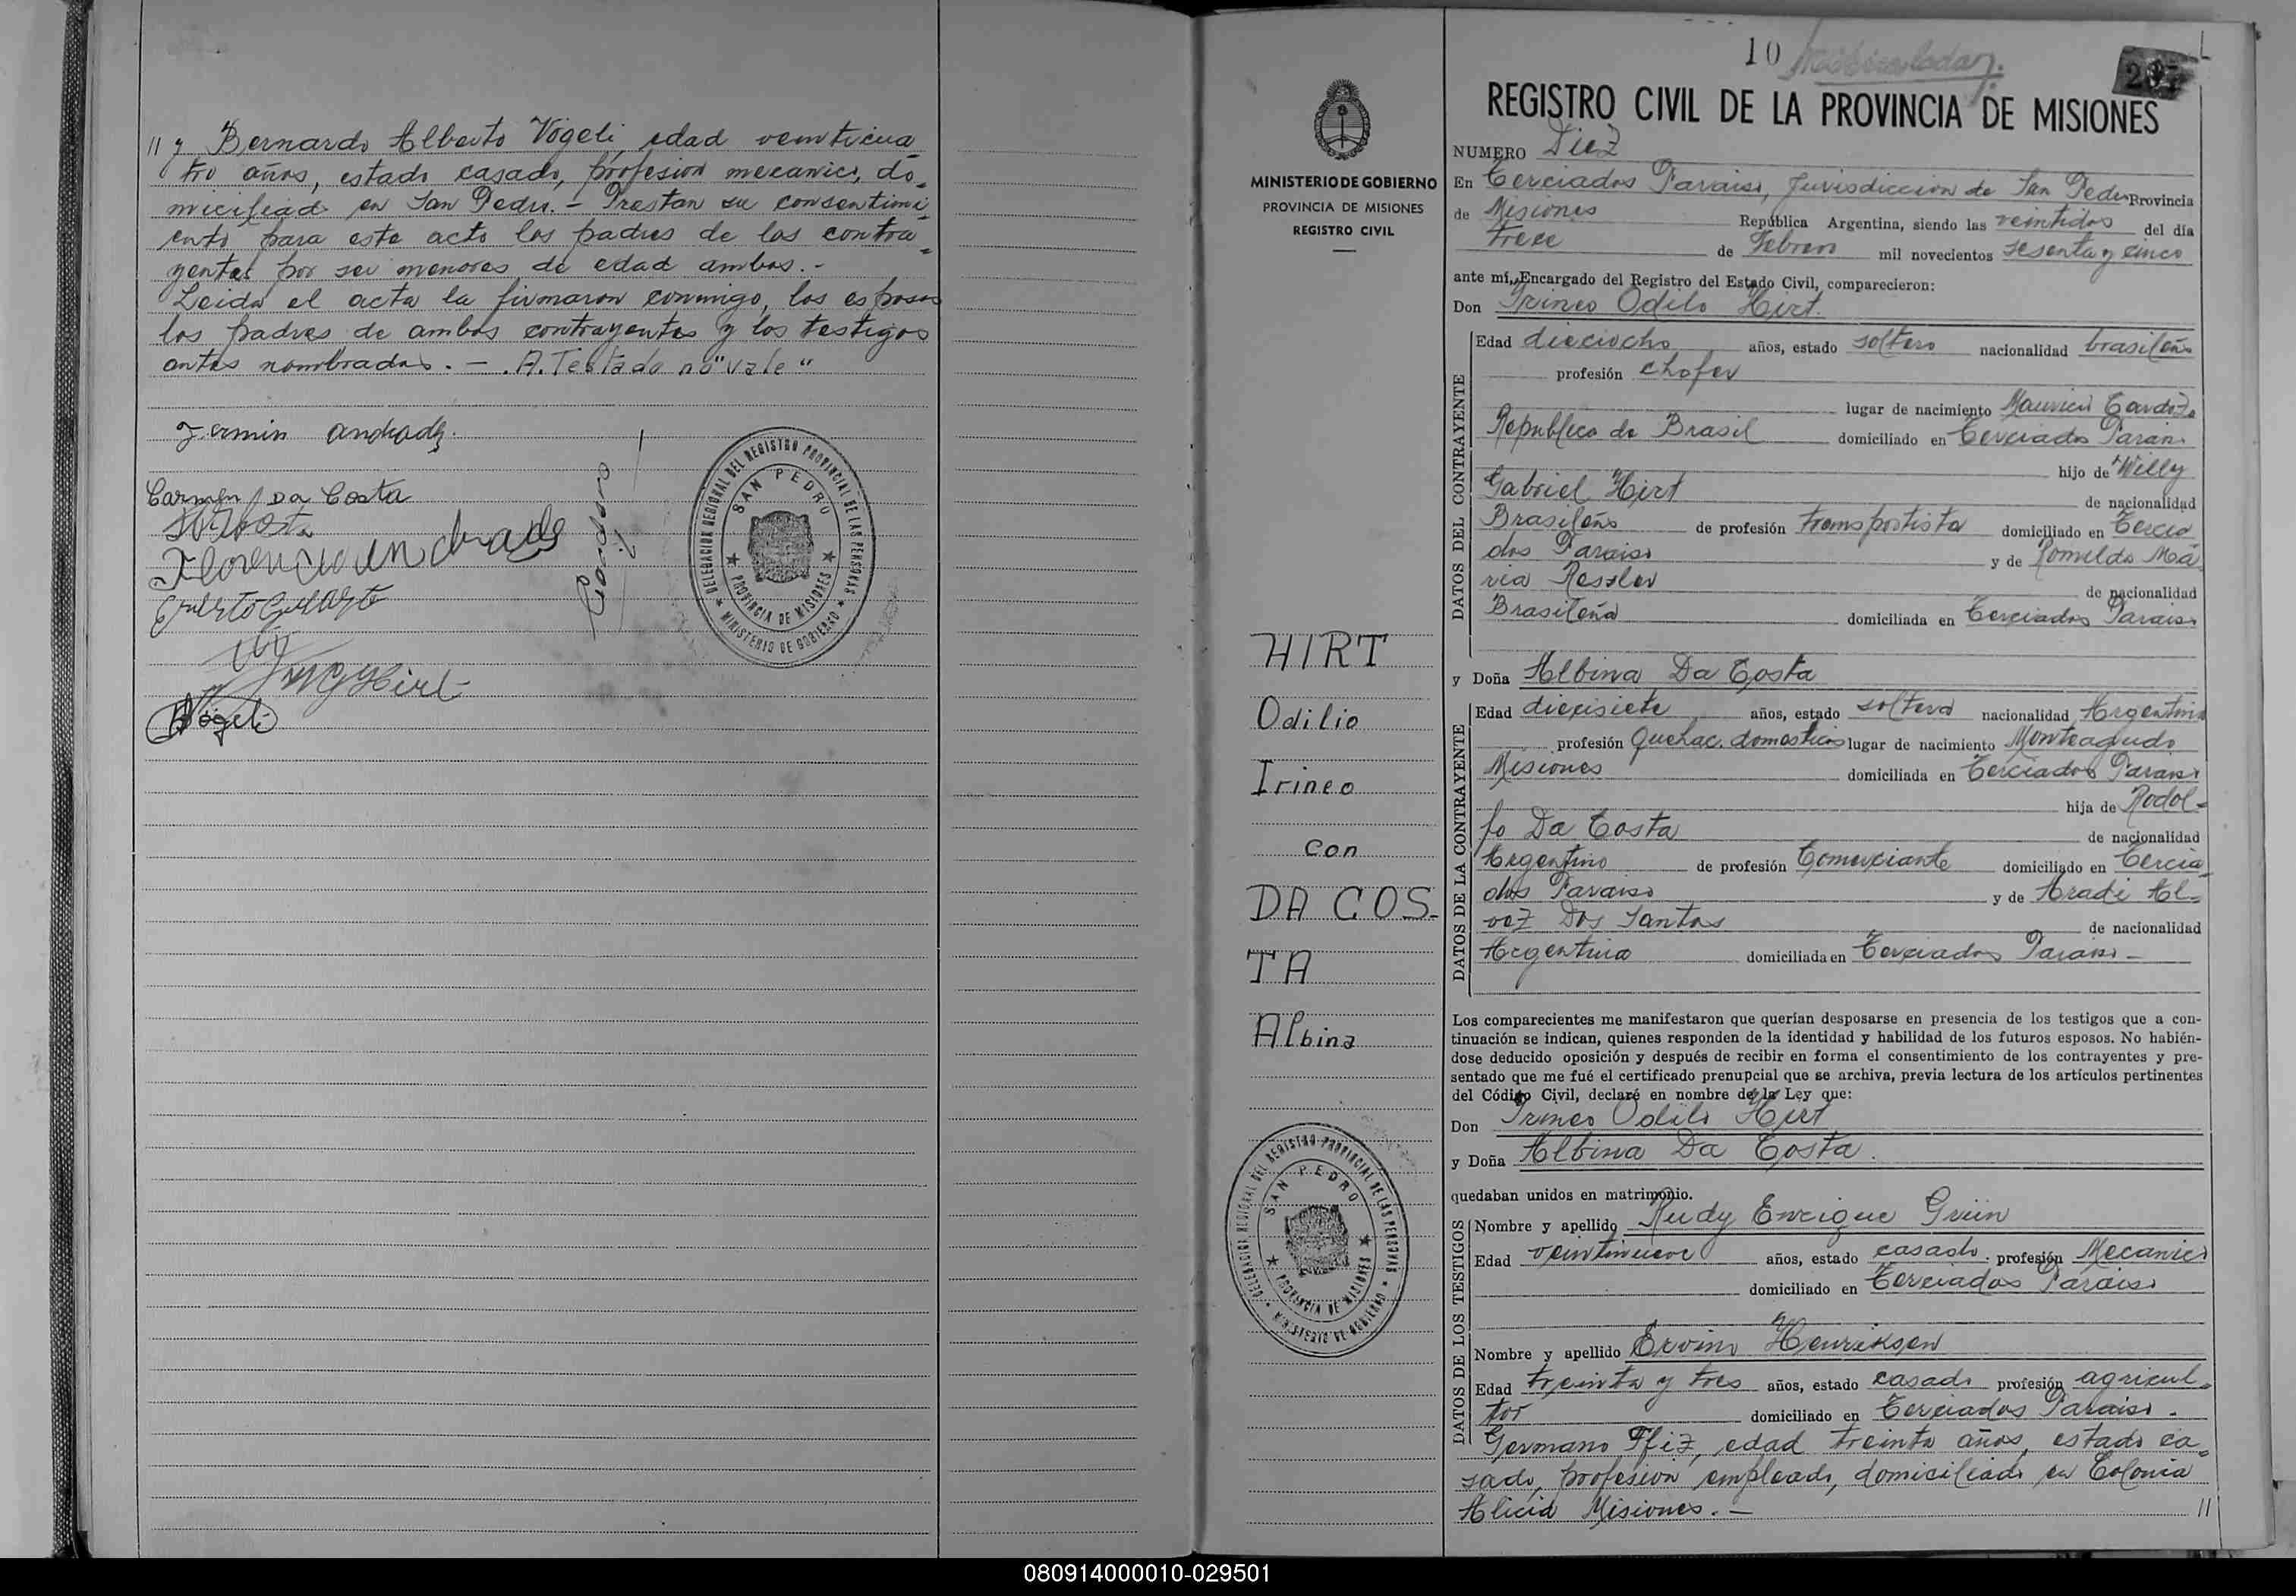 // y Bernardo Alberto Vögeli, edad veinticua
tro años, estado casado, profesion mecanico, do-
miciliado en San Pedro. - Prestan su consentimi-
ento para este acto los padres de los contra-
yentes por ser menores de edad ambos. -
Leida el acta la firmaron conmigo, los esposos
los padres de ambos contrayentes y los testigos
antes nombrados. - . A. Testado no "vale"
Fermin Andrade.
Carmen Da Costa
Florencio Andrade
Hirt
Vögeli
DELEGACION REGIONAL DEL REGISTRO PROVINCIAL DE LAS PERSONAS
SAN PEDRO
PROVINCIA DE MISIONES
MINISTERIO DE GOBIERNO
MINISTERIO DE GOBIERNO
PROVINCIA DE MISIONES
REGISTRO CIVIL
HIRT
Odilio
Irineo
con
DA COS-
TA
Albina
DELEGACION REGIONAL DEL REGISTRO PROVINCIAL DE LAS PERSONAS
SAN PEDRO
PROVINCIA DE MISIONES
MINISTERIO DE GOBIERNO
10
REGISTRO CIVIL DE LA PROVINCIA DE MISIONES
NUMERO Diez
En Terciados Paraiso, Jurisdiccion de San Pedro Provincia
de Misiones República Argentina, siendo las veintidos del día
trece de Febrero mil novecientos sesenta y cinco
ante mí, Encargado del Registro del Estado Civil, comparecieron:
Don Irineo Odilo Hirt.
DATOS DEL CONTRAYENTE
Edad dieciocho años, estado soltero nacionalidad brasileño
profesión chofer
lugar de nacimiento Mauricio Cardozo
Republica de Brasil domiciliado en Terciados Paraiso
hijo de Willy
Gabriel Hirt de nacionalidad
Brasileño de profesión transportista domiciliado en Tercia
dos Paraiso y de Romilda Ma
ria Ressler de nacionalidad
Brasileña domiciliada en Terciados Paraiso
y Doña Albina Da Costa
DATOS DE LA CONTRAYENTE
Edad diecisiete años, estado soltera nacionalidad Argentina
profesión Quehac. domesticos lugar de nacimiento Monteagudo
Misiones domiciliada en Terciados Paraiso
hija de Rodol-
fo Da Costa de nacionalidad
Argentino de profesión Comerciante domiciliado en Tercia-
dos Paraiso y de Aradi Al-
vez Dos Santos de nacionalidad
Argentina domiciliada en Terciados Paraiso -
Los comparecientes me manifestaron que querían desposarse en presencia de los testigos que a con-
tinuación se indican, quienes responden de la identidad y habilidad de los futuros esposos. No habién-
dose deducido oposición y después de recibir en forma el consentimiento de los contrayentes y pre-
sentado que me fué el certificado prenupcial que se archiva, previa lectura de los artículos pertinentes
del Código Civil, declaré en nombre de la Ley que:
Don Irineo Odilo Hirt
y Doña Albina Da Costa.
quedaban unidos en matrimonio.
DATOS DE LOS TESTIGOS
Nombre y apellido Rudy Enrique Grün
Edad veintinueve años, estado casado profesión Mecanico
domiciliado en Terciados Paraiso
Nombre y apellido Ervin Henriksen
Edad treinta y tres años, estado casado profesión agricul-
tor domiciliado en Terciados Paraiso.
Germano Pfiz, edad treinta años, estado ca-
sado, profesion empleado, domiciliado en Colonia
Alicia Misiones. - //
080914000010-029501